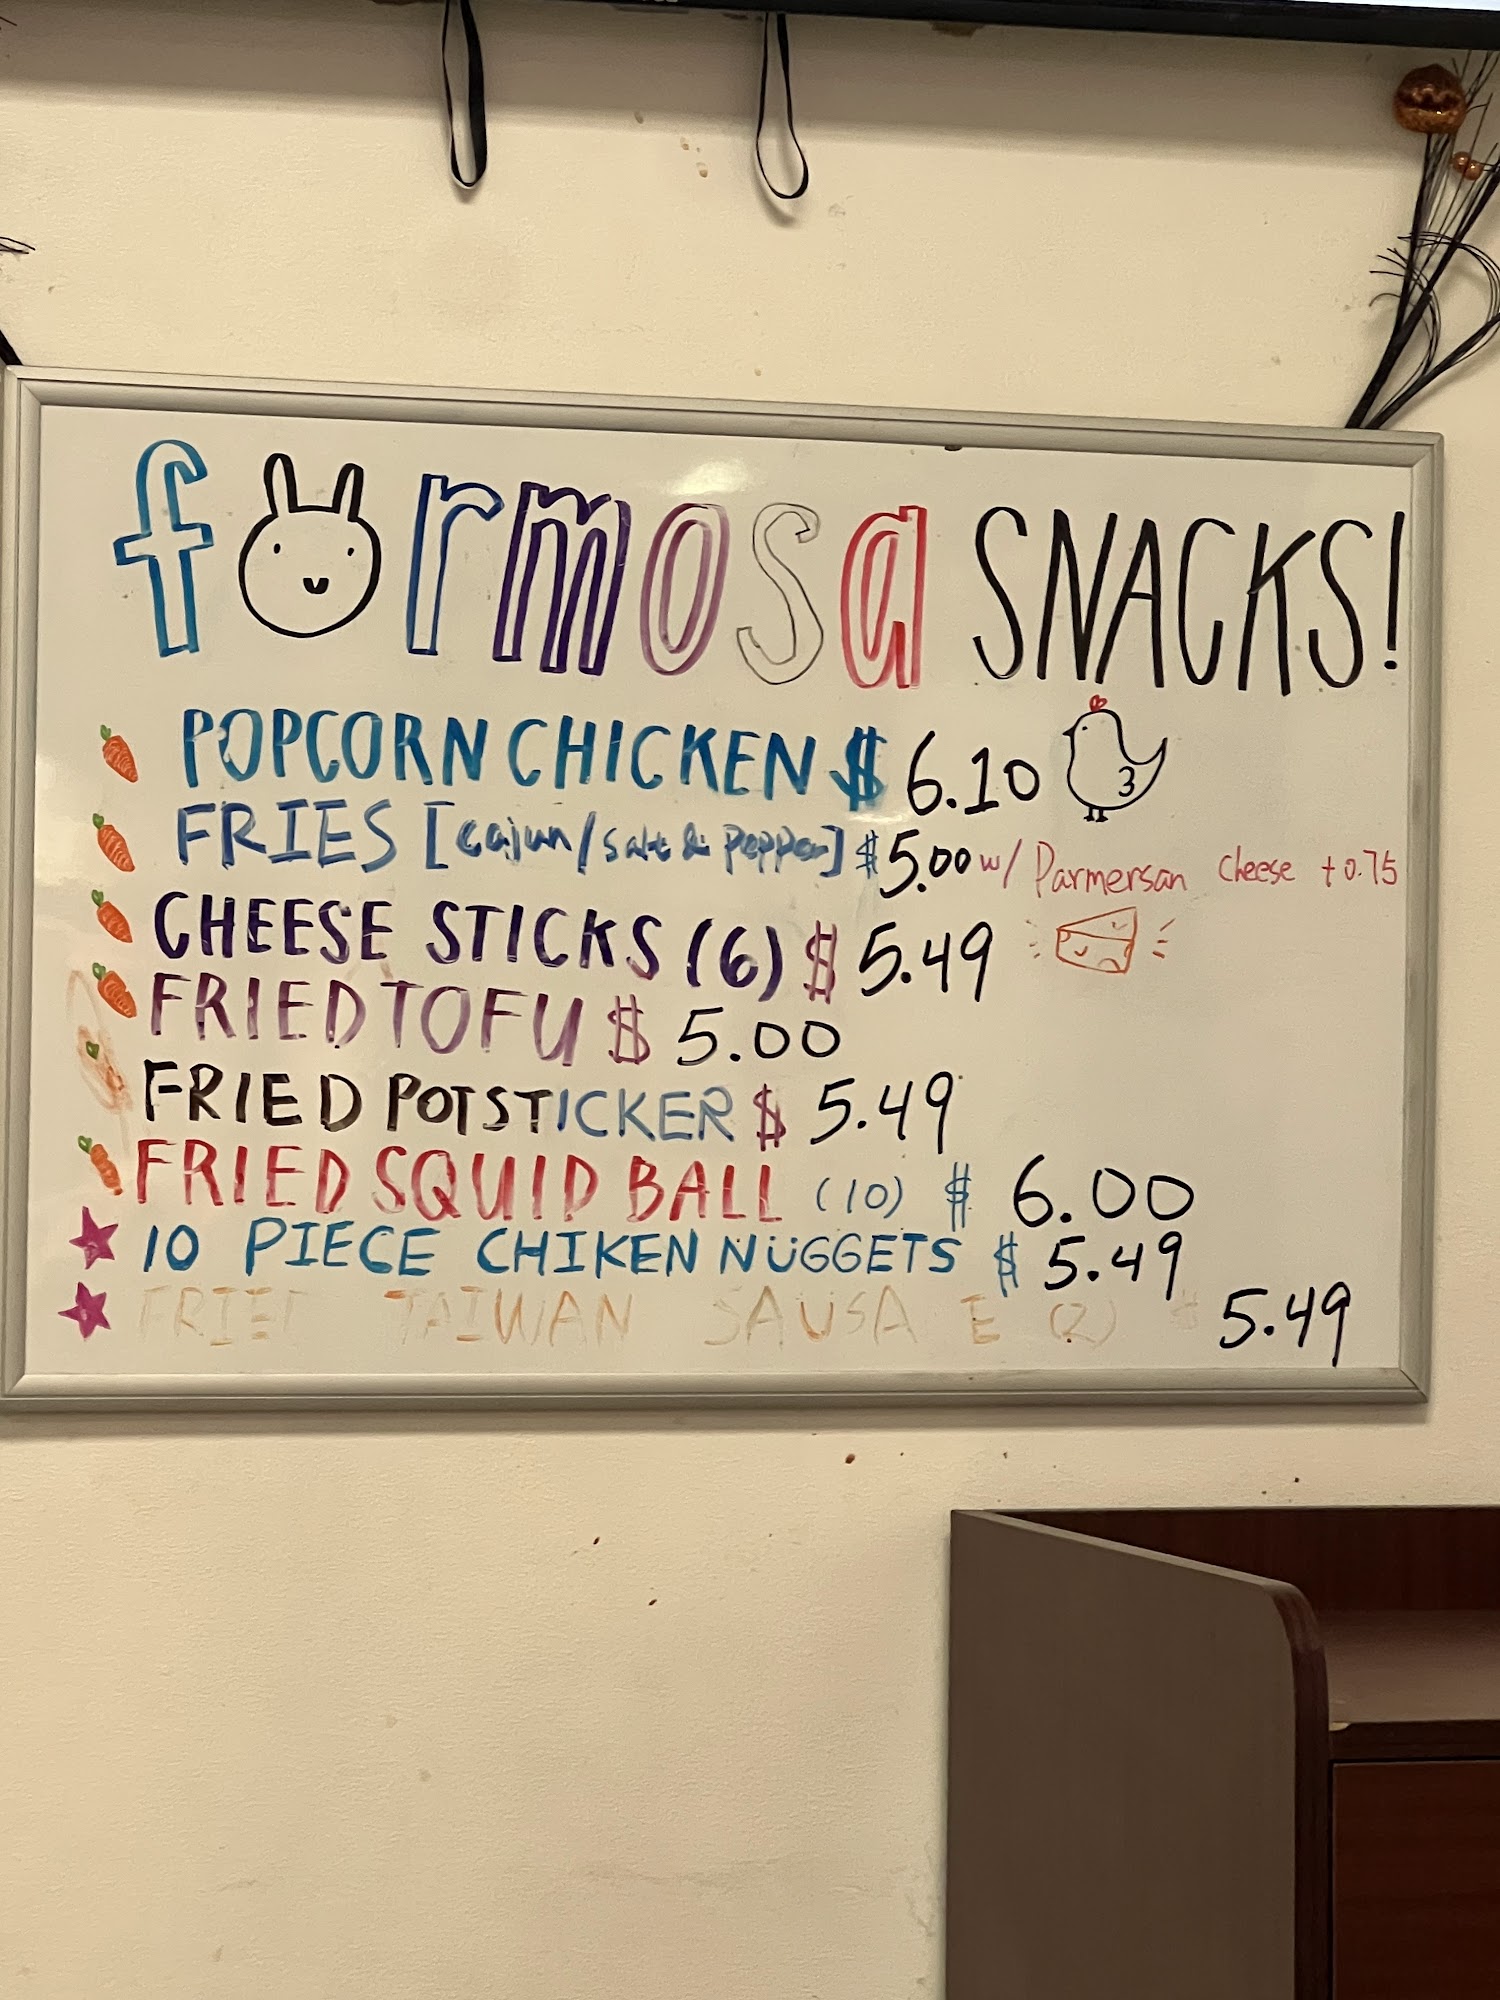 formosa SNACKS!
POPCORN CHICKEN $ 6.10
FRIES [cajun/salt & pepper] $5.00 w/ Parmersan cheese +0.75
CHEESE STICKS (6) $ 5.49
FRIED TOFU $ 5.00
FRIED POTSTICKER $ 5.49
FRIED SQUID BALL (10) $ 6.00
10 PIECE CHIKEN NUGGETS $ 5.49
FRIED TAIWAN SAUSA E (2) $ 5.49